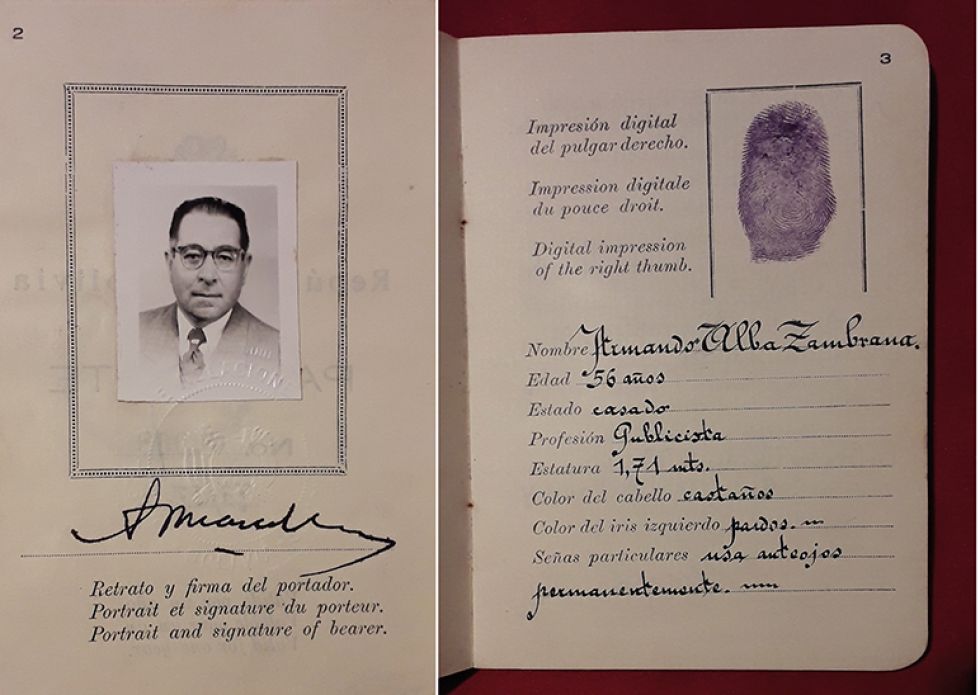 2
Retrato y firma del portador.
Portrait et signature du porteur.
Portrait and signature of bearer.
3
Impresión digital
del pulgar derecho.
Impression digitale
du pouce droit.
Digital impression
of the right thumb.
Nombre Armando Alba Zambrana.
Edad 56 años
Estado casado
Profesión Publicista
Estatura 1,71 mts.
Color del cabello castaños
Color del iris izquierdo pardos.
Señas particulares usa anteojos
permanentemente.